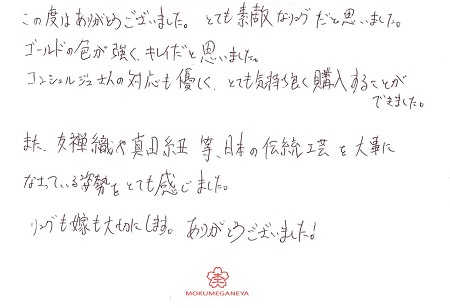 この度はありがとうございました。とても素敵なリングだと思いました。
ゴールドの色が強く、キレイだと思いました。
コンシェルジュさんの対応も優しく、とても気持ち良く購入することが
できました。
また、友禅織や真田紐 等、日本の伝統工芸を大事に
なさっている姿勢をとても感じました。
リングも嫁も大切にします。ありがとうございました!
MOKUMEGANEYA